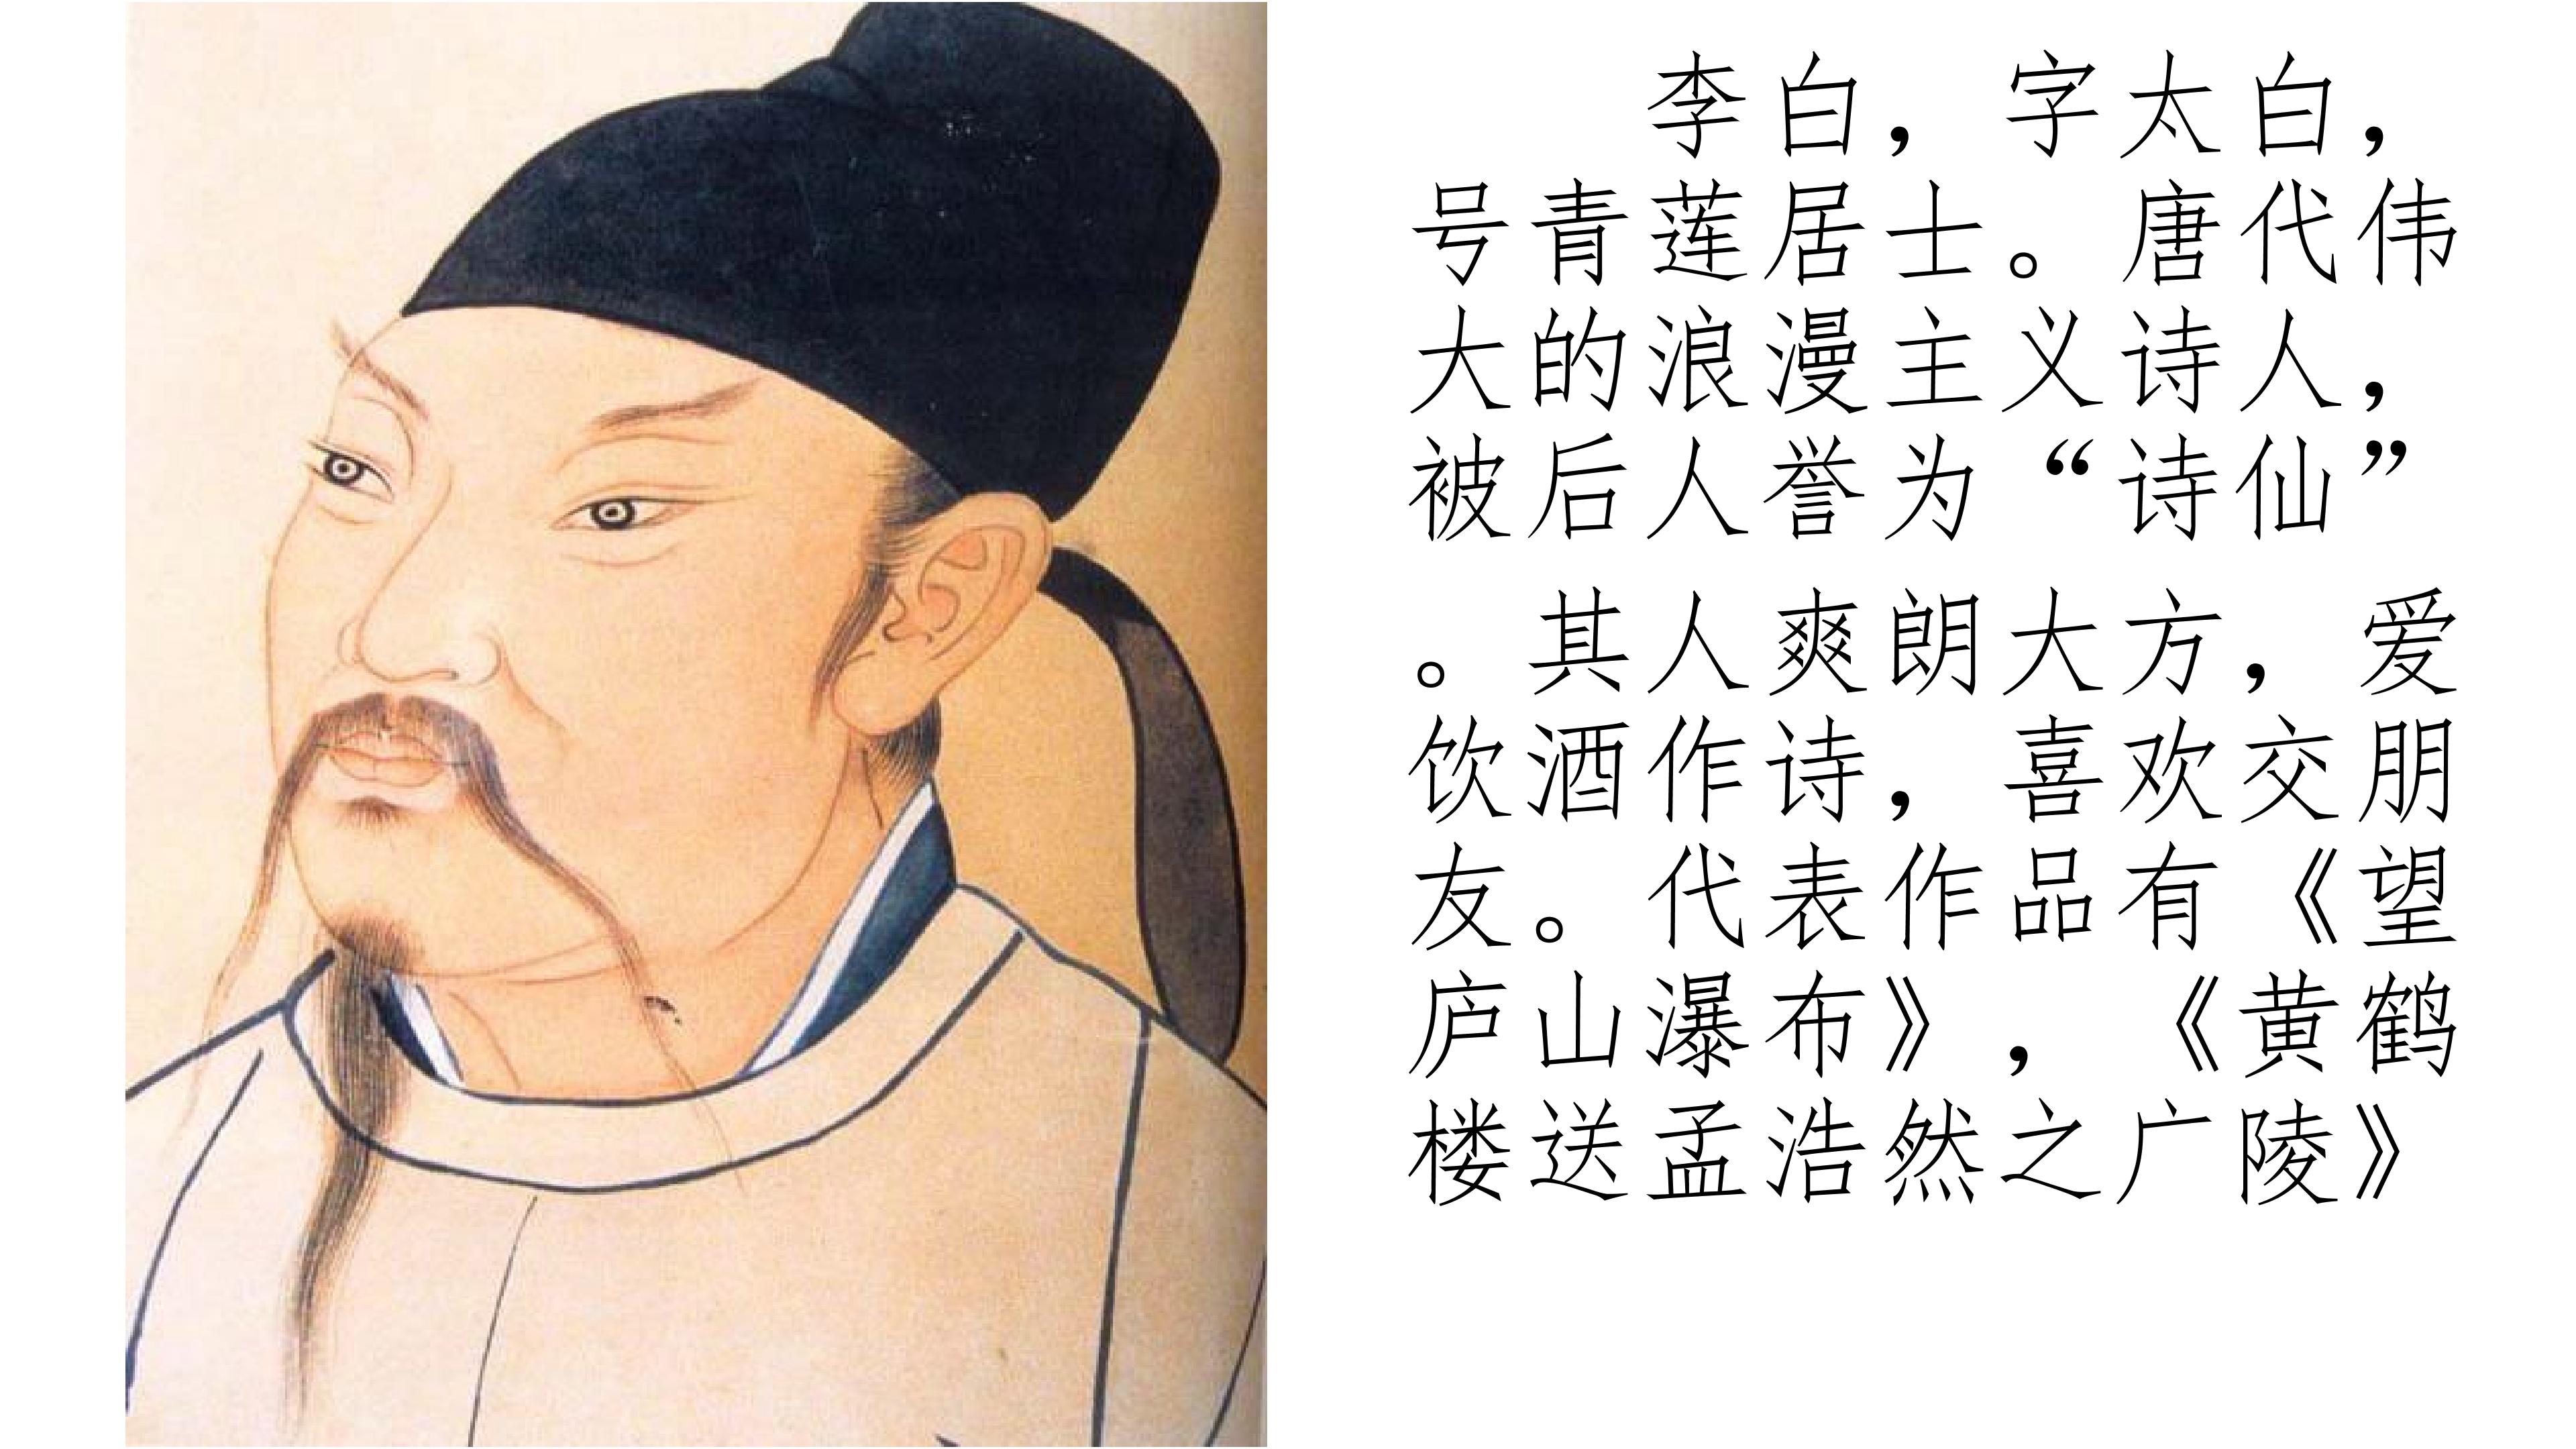 李白，字太白，
号青莲居士。唐代伟
大的浪漫主义诗人，
被后人誉为“诗仙”
。其人爽朗大方，爱
饮酒作诗，喜欢交朋
友。代表作品有《望
庐山瀑布》，《黄鹤
楼送孟浩然之广陵》